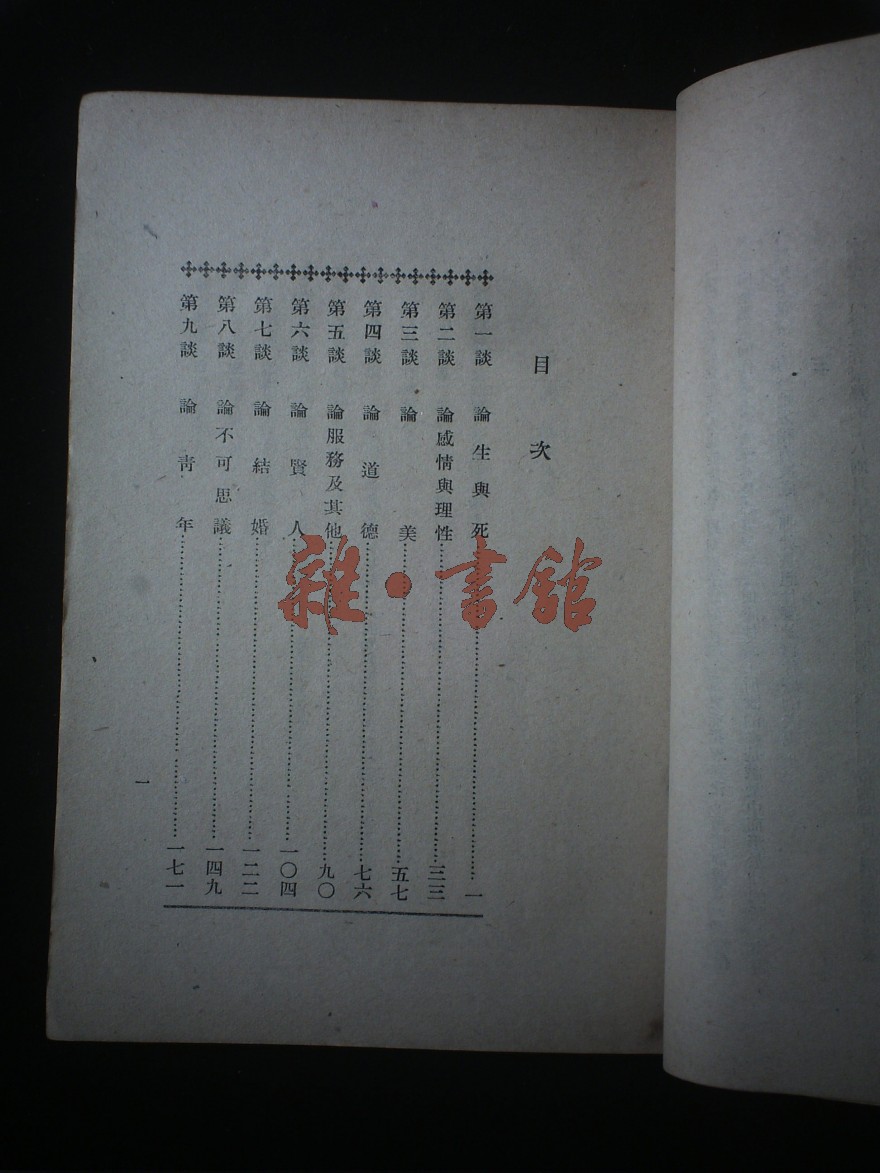 目次
第一談 論生與死 一
第二談 論感情與理性 三三
第三談 論美 五七
第四談 論道德 七六
第五談 論服務及其他 九〇
第六談 論賢人 一〇四
第七談 論結婚 一二二
第八談 論不可思議 一四九
第九談 論靑年 一七一
一
雜·書館